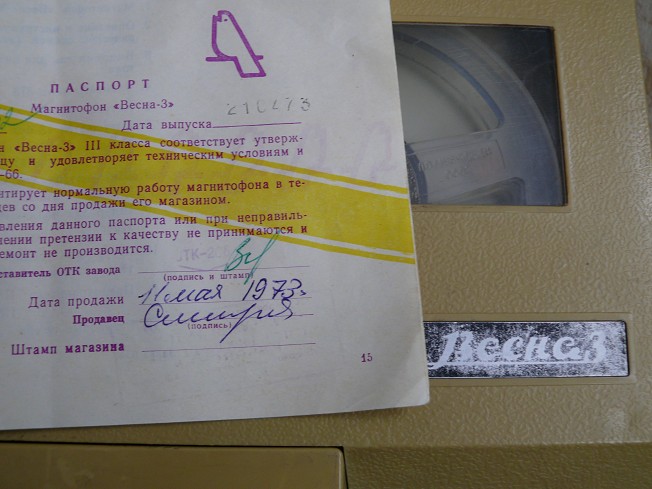 ПАСПОРТ
Магнитофон «Весна-3»
Дата выпуска
н «Весна-3» III класса соответствует утверж-
цу и удовлетворяет техническим условиям и
-66.
нтирует нормальную работу магнитофона в те-
цев со дня продажи его магазином.
вления данного паспорта или при неправиль-
нении претензии к качеству не принимаются и
емонт не производится.
ставитель ОТК завода
(подпись и штамп)
Дата продажи 11 мая 1973г
Продавец
(подпись)
Штамп магазина
15
Весна 3